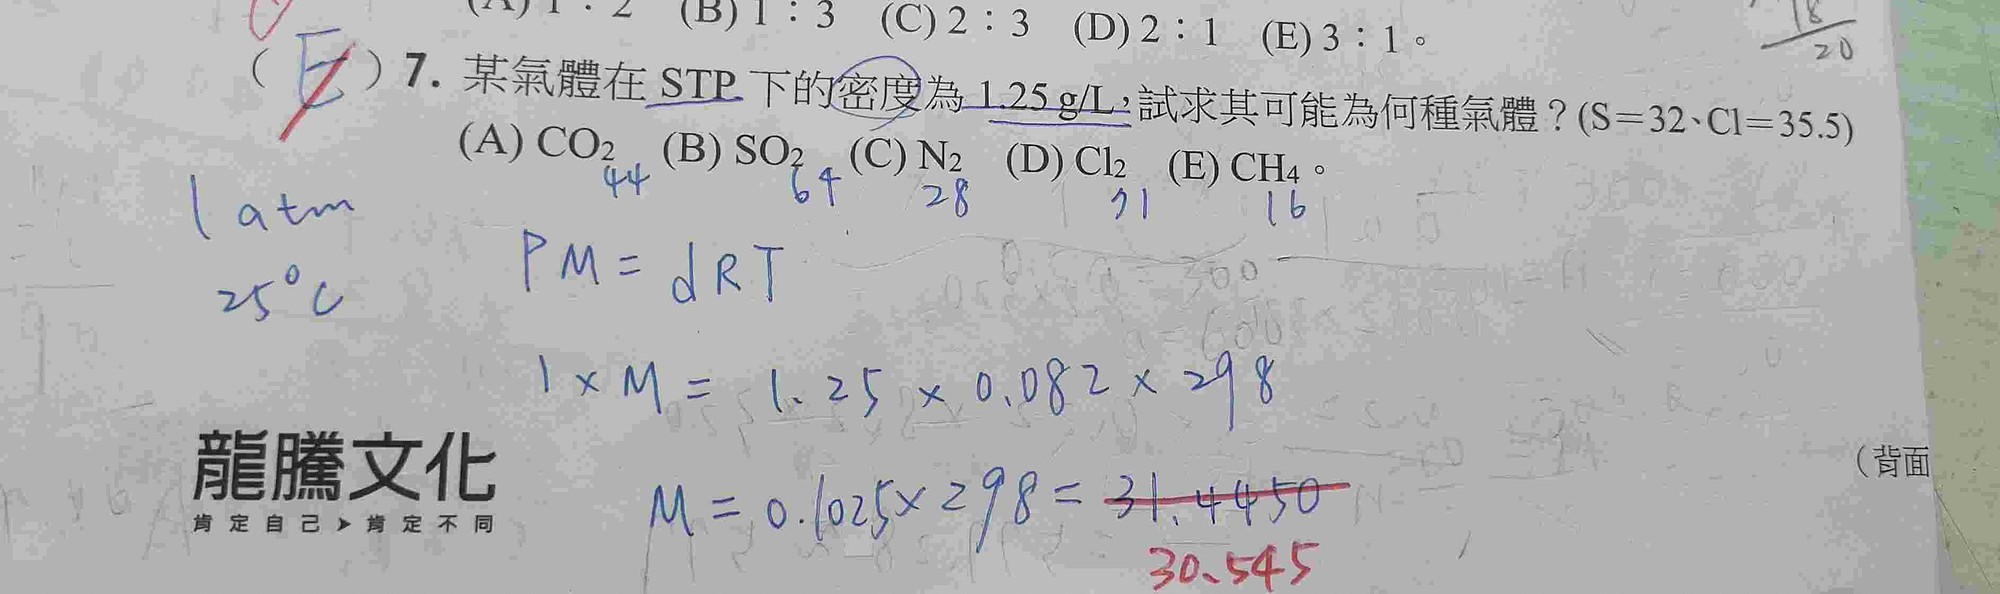 (A) 1：2 (B) 1：3 (C) 2：3 (D) 2：1 (E) 3：1。
18
20
（E）7. 某氣體在 STP 下的密度為 1.25 g/L，試求其可能為何種氣體？(S＝32、Cl＝35.5)
(A) CO₂ (B) SO₂ (C) N₂ (D) Cl₂ (E) CH₄。
44 64 28 71 16
1 atm
25°C
PM = dRT
1 × M = 1.25 × 0.082 × 298
M = 0.1025 × 298 = 31.4450
30.545
龍騰文化
肯定自己➤肯定不同
（背面